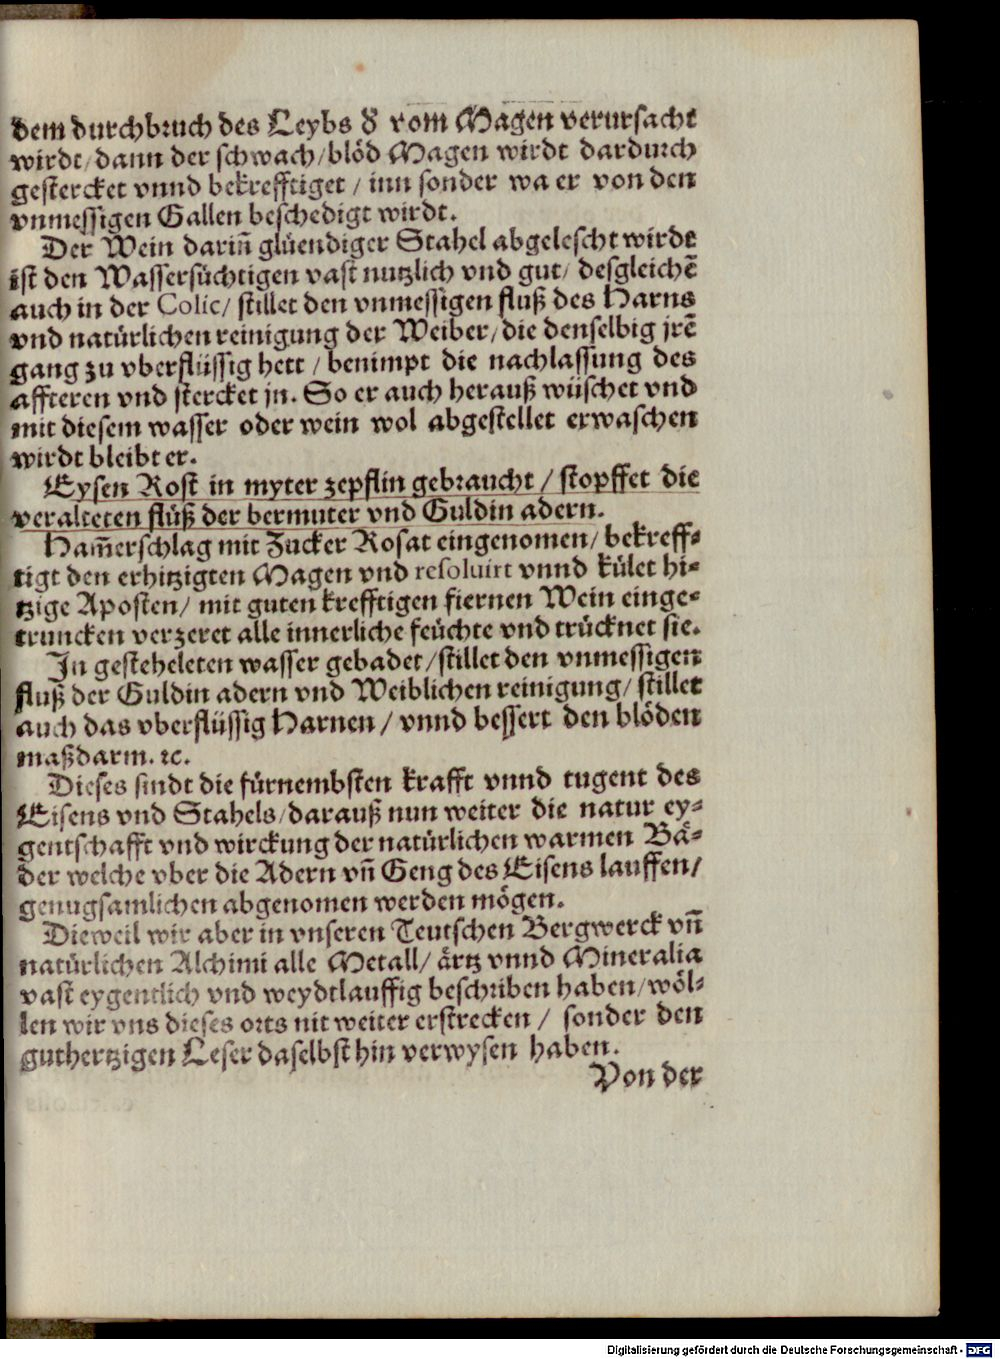 dem durchbruch des Leybs d̕ vom Magen verursacht
wirdt/dann der schwach/blöd Magen wirdt dardurch
gestercket vnnd bekrefftiget / inn sonder wa er von den
vnmessigen Gallen beschedigt wirdt.
Der Wein dariñ glüendiger Stahel abgelescht wirdt
ist den Wassersüchtigen vast nutzlich vnd gut/ desgleichẽ
auch in der Colic/ stillet den vnmessigen fluß des Harns
vnd natürlichen reinigung der Weiber/die denselbig jrẽ
gang zu vberflüssig hett / benimpt die nachlassung des
affteren vnd stercket jn. So er auch herauß wüschet vnd
mit diesem wasser oder wein wol abgestellet erwaschen
wirdt bleibt er.
Eysen Rost in myter zepflin gebraucht / stopffet die
veralteten flüß der bermuter vnd Guldin adern.
Ham̃erschlag mit Zucker Rosat eingenomen/ bekreff-
tigt den erhitzigten Magen vnd resoluirt vnnd kület hi-
tzige Aposten/ mit guten krefftigen fiernen Wein einge-
truncken verzeret alle innerliche feüchte vnd trücknet sie.
In gesteheleten wasser gebadet/stillet den vnmessigen
fluß der Guldin adern vnd Weiblichen reinigung/ stillet
auch das vberflüssig Harnen / vnnd bessert den blöden
maßdarm. ꝛc.
Dieses sindt die fürnembsten krafft vnnd tugent des
Eisens vnd Stahels/darauß nun weiter die natur ey-
gentschafft vnd wirckung der natürlichen warmen Bä-
der welche vber die Adern vñ Geng des Eisens lauffen/
genugsamlichen abgenomen werden mögen.
Dieweil wir aber in vnseren Teutschen Bergwerck vñ
natürlichen Alchimi alle Metall/ ärtz vnnd Mineralia
vast eygentlich vnd weydtlauffig beschriben haben/wöl-
len wir vns dieses orts nit weiter erstrecken / sonder den
guthertzigen Leser daselbst hin verwysen haben.
Von der
Digitalisierung gefördert durch die Deutsche Forschungsgemeinschaft - DFG